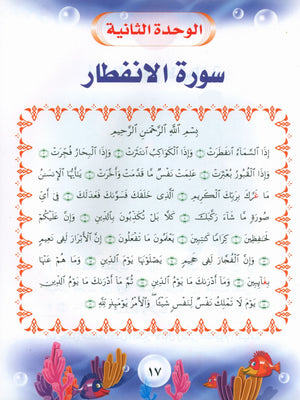 الوحدة الثانية
سورة الانفطار
بِسْمِ اللَّهِ الرَّحْمَٰنِ الرَّحِيمِ
إِذَا السَّمَاءُ انفَطَرَتْ ۝ وَإِذَا الْكَوَاكِبُ انتَثَرَتْ ۝ وَإِذَا الْبِحَارُ فُجِّرَتْ ۝
وَإِذَا الْقُبُورُ بُعْثِرَتْ ۝ عَلِمَتْ نَفْسٌ مَّا قَدَّمَتْ وَأَخَّرَتْ ۝ يَٰأَيُّهَا الْإِنسَٰنُ
مَا غَرَّكَ بِرَبِّكَ الْكَرِيمِ ۝ الَّذِي خَلَقَكَ فَسَوَّىٰكَ فَعَدَلَكَ ۝ فِي أَيِّ
صُورَةٍ مَّا شَاءَ رَكَّبَكَ ۝ كَلَّا بَلْ تُكَذِّبُونَ بِالدِّينِ ۝ وَإِنَّ عَلَيْكُمْ
لَحَٰفِظِينَ ۝ كِرَامًا كَٰتِبِينَ ۝ يَعْلَمُونَ مَا تَفْعَلُونَ ۝ إِنَّ الْأَبْرَارَ لَفِي نَعِيمٍ
۝ وَإِنَّ الْفُجَّارَ لَفِي جَحِيمٍ ۝ يَصْلَوْنَهَا يَوْمَ الدِّينِ ۝ وَمَا هُمْ عَنْهَا
بِغَائِبِينَ ۝ وَمَا أَدْرَىٰكَ مَا يَوْمُ الدِّينِ ۝ ثُمَّ مَا أَدْرَىٰكَ مَا يَوْمُ الدِّينِ
۝ يَوْمَ لَا تَمْلِكُ نَفْسٌ لِّنَفْسٍ شَيْئًا وَالْأَمْرُ يَوْمَئِذٍ لِّلَّهِ ۝
١٧